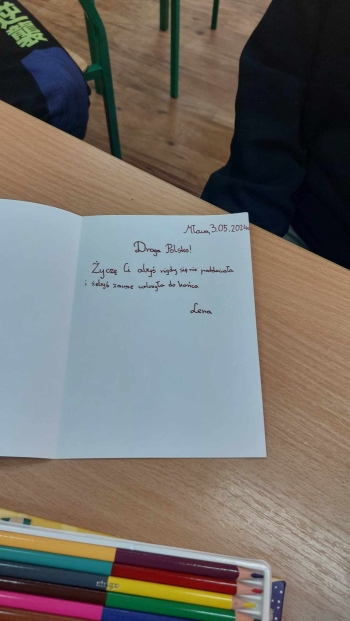 Mława, 3.05.2024r.
Droga Polsko!
Życzę Ci abyś nigdy się nie poddawała
i żebyś zawsze walczyła do końca
Lena